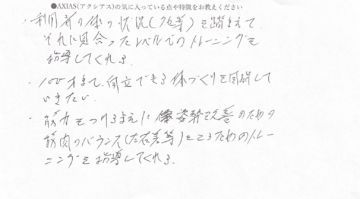 ●AXIAS(アクシアス)の気に入っている点や特徴をお教えください
・利用者の体の状況(た位等)を踏まえて、
それに見合ったレベルでのトレーニングを
指導してくれる。
・100才まで、自立できる体づくりを目指して
いきたい。
・筋力をつけるために 姿勢改善のための
筋肉のバランス(左右差等)をとるためのトレー
ニングを指導してくれる。